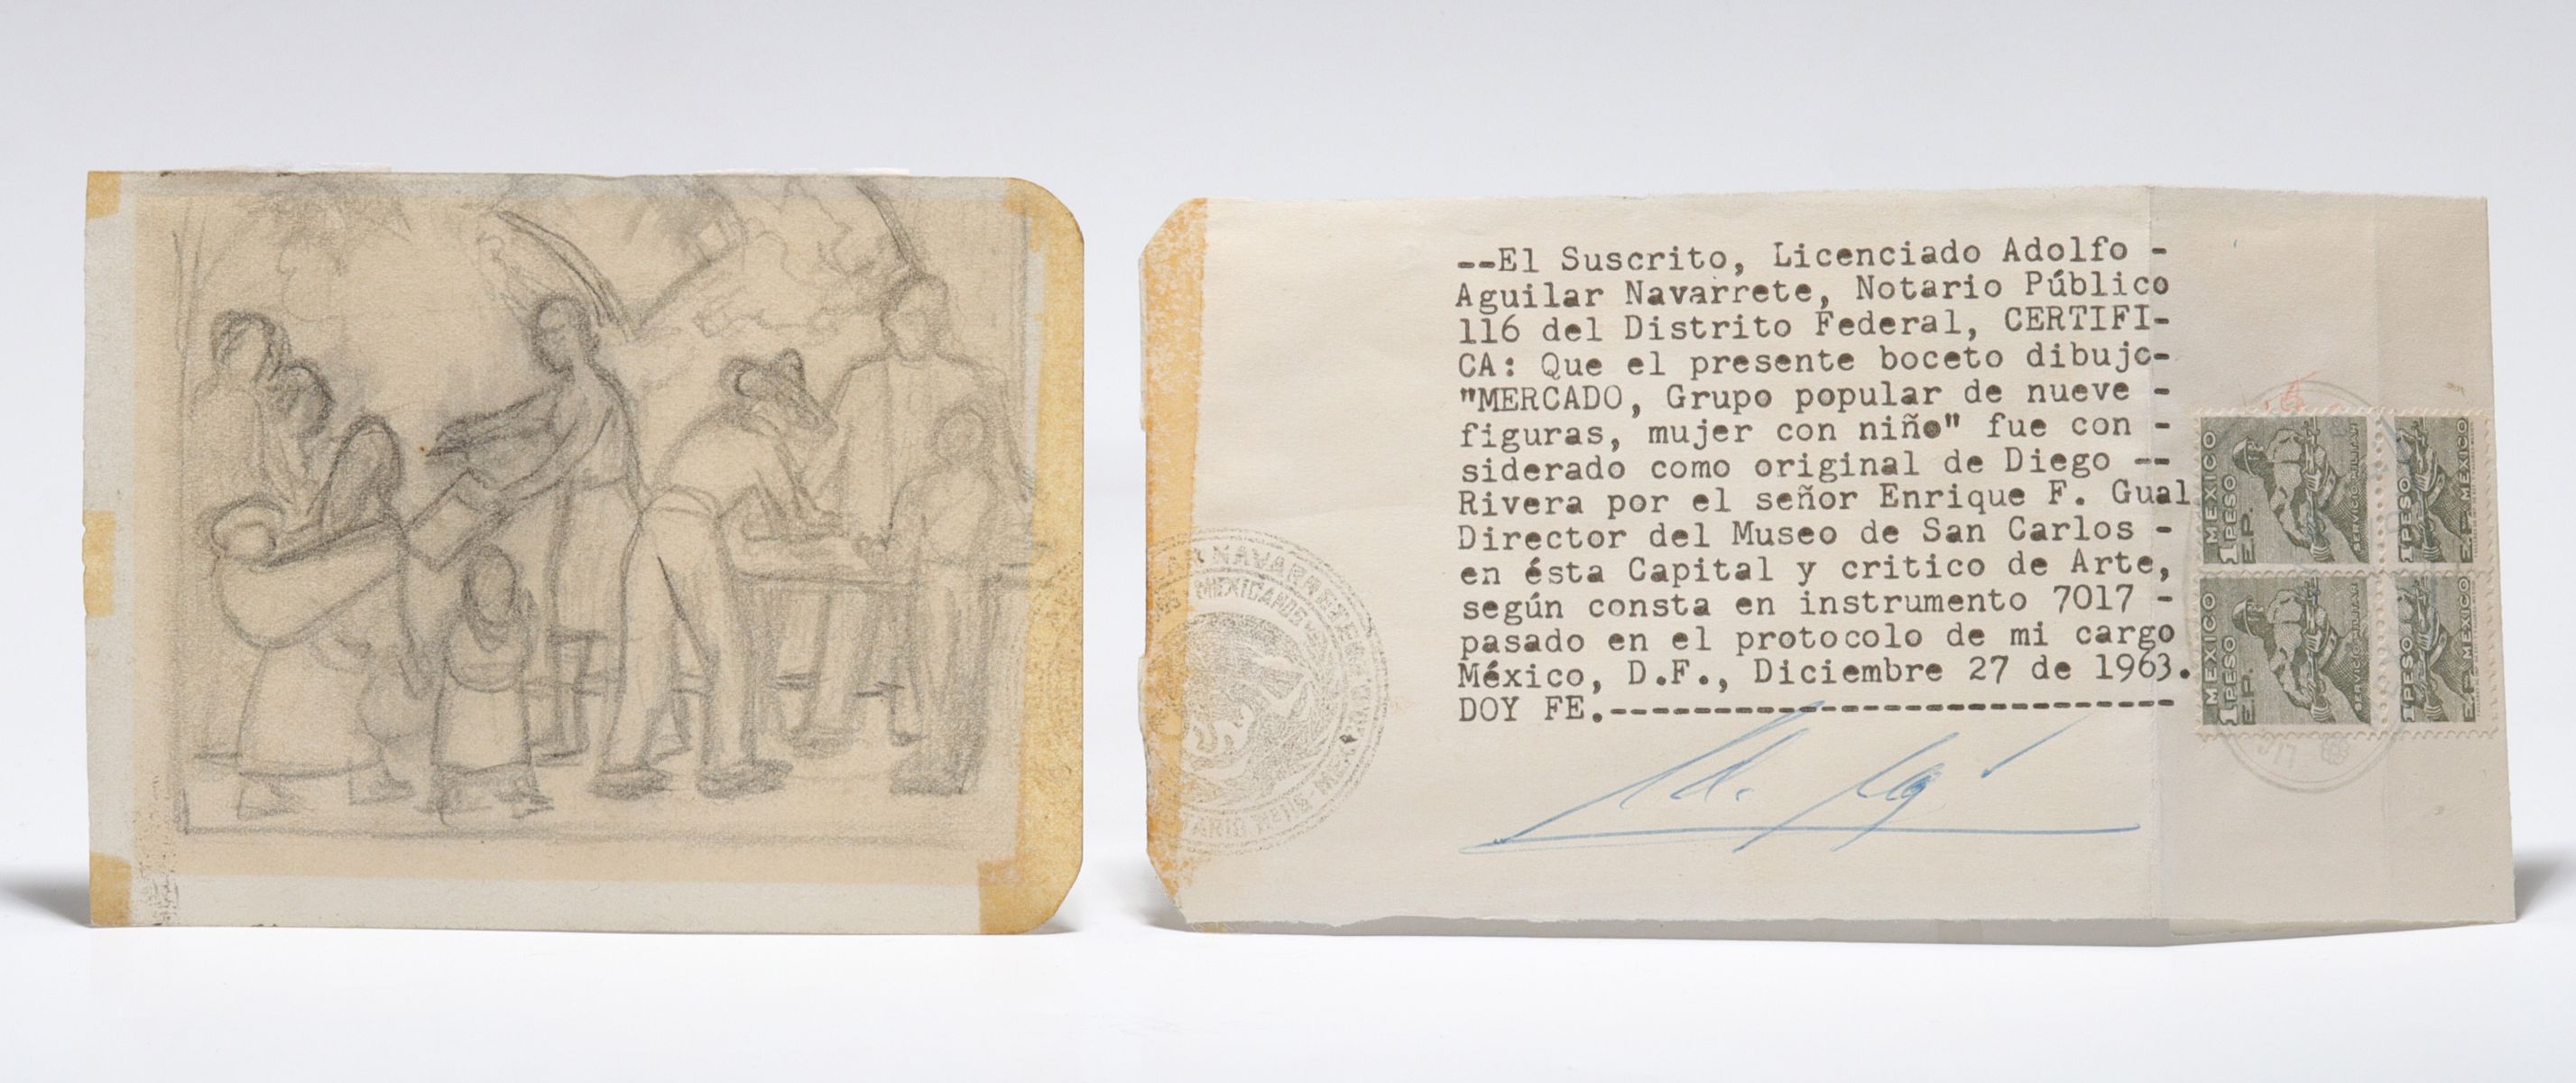 --El Suscrito, Licenciado Adolfo -
Aguilar Navarrete, Notario Público
116 del Distrito Federal, CERTIFI-
CA: Que el presente boceto dibujo-
"MERCADO, Grupo popular de nueve -
figuras, mujer con niño" fue con -
siderado como original de Diego --
Rivera por el señor Enrique F. Gual
Director del Museo de San Carlos -
en ésta Capital y critico de Arte,
según consta en instrumento 7017 -
pasado en el protocolo de mi cargo
México, D.F., Diciembre 27 de 1963.
DOY FE.------------------------------
NAVARRETE
MEXICANOS
MEXICO
1 PESO
E.P.
1 PESO
E.P. MEXICO
MEXICO
1 PESO
E.P.
1 PESO
E.P. MEXICO
LIC